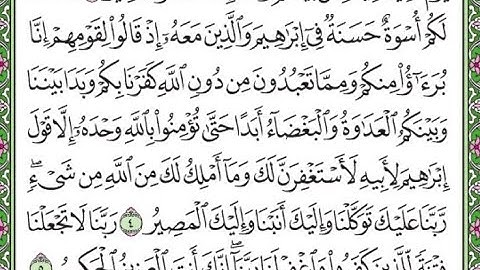 لَكُمْ أُسْوَةٌ حَسَنَةٌ فِىٓ إِبْرَٰهِيمَ وَٱلَّذِينَ مَعَهُۥٓ إِذْ قَالُوا۟ لِقَوْمِهِمْ إِنَّا
بُرَءَٰٓؤُا۟ مِنكُمْ وَمِمَّا تَعْبُدُونَ مِن دُونِ ٱللَّهِ كَفَرْنَا بِكُمْ وَبَدَا بَيْنَنَا
وَبَيْنَكُمُ ٱلْعَدَٰوَةُ وَٱلْبَغْضَآءُ أَبَدًا حَتَّىٰ تُؤْمِنُوا۟ بِٱللَّهِ وَحْدَهُۥٓ إِلَّا قَوْلَ
إِبْرَٰهِيمَ لِأَبِيهِ لَأَسْتَغْفِرَنَّ لَكَ وَمَآ أَمْلِكُ لَكَ مِنَ ٱللَّهِ مِن شَىْءٍ ۖ
رَّبَّنَا عَلَيْكَ تَوَكَّلْنَا وَإِلَيْكَ أَنَبْنَا وَإِلَيْكَ ٱلْمَصِيرُ ٤ رَبَّنَا لَا تَجْعَلْنَا
فِتْنَةً لِّلَّذِينَ كَفَرُوا۟ وَٱغْفِرْ لَنَا رَبَّنَآ ۖ إِنَّكَ أَنتَ ٱلْعَزِيزُ ٱلْحَكِيمُ ٥